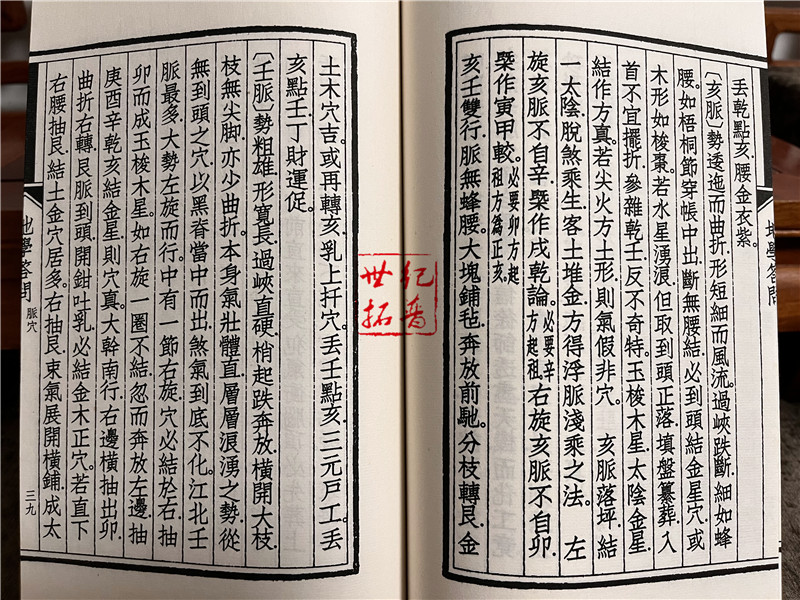 地學答問
丢乾點亥.腰金衣紫。
〔亥脈〕勢逶迤而曲折.形短細而風流。過峽跌斷.細如蜂
腰。如梧桐節穿帳中出.斷無腰結.必到頭結金星穴.或
木形如梭棗.若水星湧浪.但取到頭正落.填盤纂葬.入
首不宜擺折.參雜乾壬.反不奇特。玉梭木星.太陰金星.
結作方真。若尖火方土形.則氣假非穴。 亥脈落坪.結
一太陰.脫煞乘生.客土堆金.方得浮脈淺乘之法。 左
旋亥脈不自辛.槩作戌乾論。必要辛方起祖。右旋亥脈不自卯.
槩作寅甲較。必要卯方起祖方為正亥。
亥壬雙行.脈無蜂腰。大塊鋪毡.奔放前馳。分枝轉艮.金
土木穴吉。或再轉亥.乳上扦穴。丢壬點亥.三元戸工。丢
亥點壬.丁財運促。
〔壬脈〕勢粗雄.形寬長.過峽直硬.梢起跌奔放.橫開大枝.
枝無尖脚.亦少曲折。本身氣壯體直.層層滾湧之勢.從
無到頭之穴.以黑脊當中而出.煞氣到底不化。江北壬
脈最多.大勢左旋而行.中有一節右旋.穴必結於右.抽
卯而成玉梭木星。如右旋一圈不結.忽而奔放左邊.抽
庚酉辛乾亥結金星.則穴真。大幹南行.右邊橫抽出卯.
曲折右轉.艮脈到頭.開鉗吐乳.必結金木正穴。若直下
右腰抽艮.結土金穴居多。右抽艮.束氣展開橫鋪.成太
地學答問 脈穴 三九
世紀
拓普